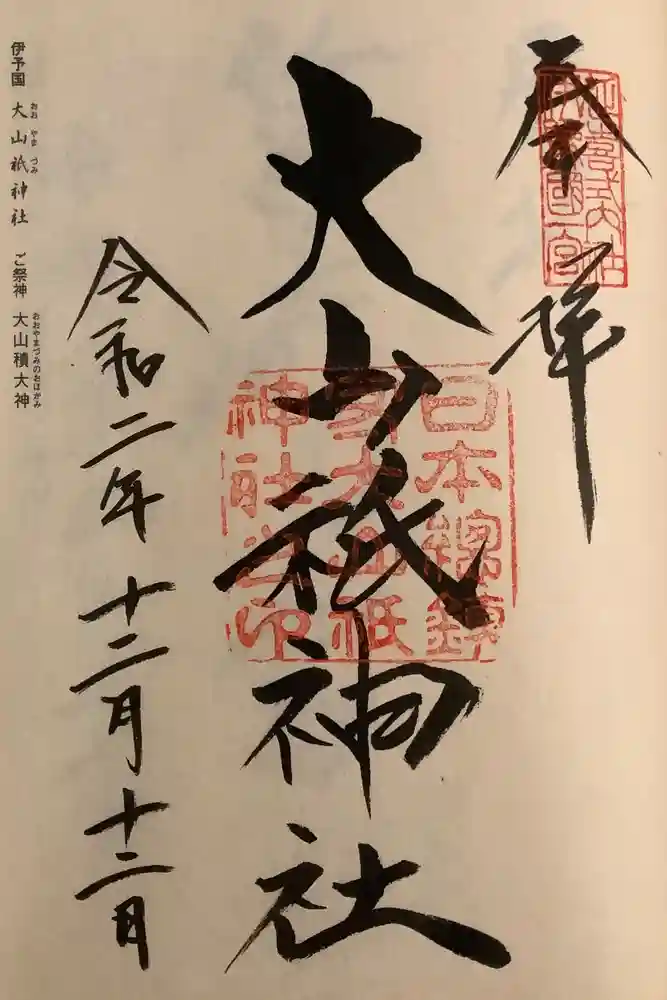 奉拝
延喜式内社
伊豫國一宮
大山祇神社
日本総鎮
守大山祇
神社之印
令和二年十二月十二日
伊予国 大山祇神社 ご祭神 大山積大神
おお やま づみ
おおやまづみのおほかみ